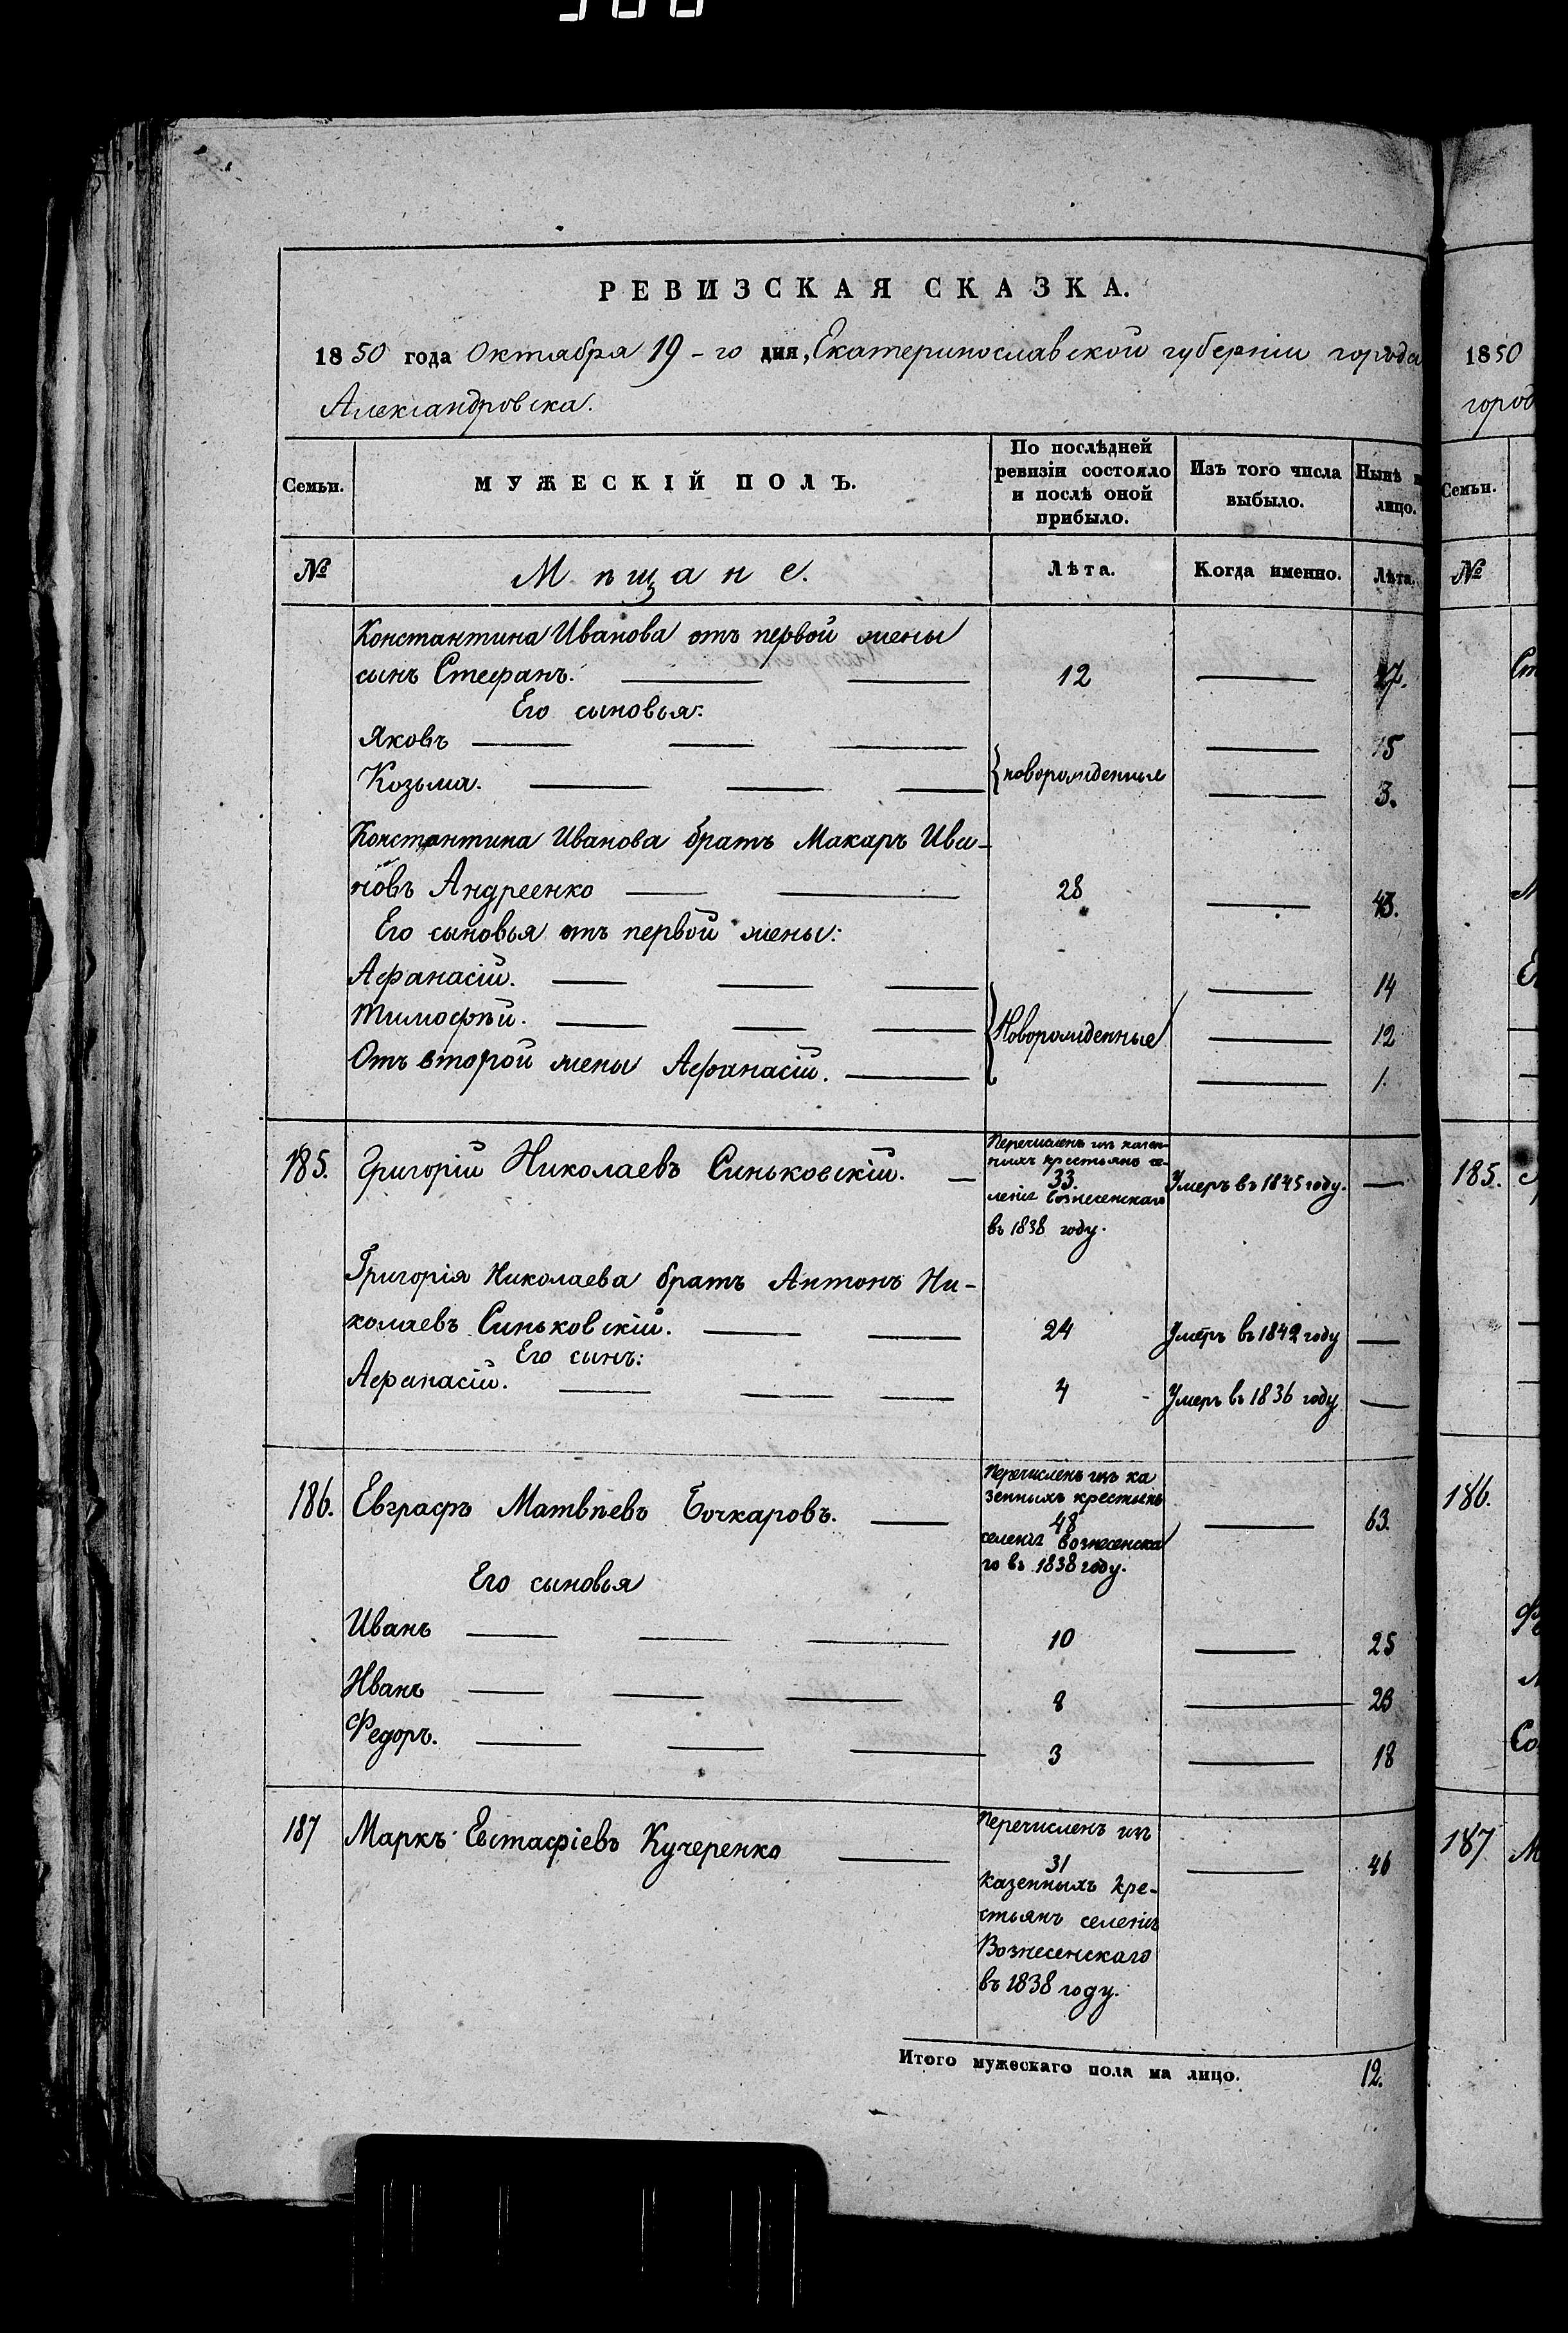 РЕВИЗСКАЯ СКАЗКА.
1850 года Октября 19-го дня, Екатеринославской губерніи города
Александровска.
Семьи.
МУЖЕСКІЙ ПОЛЪ.
По послѣдней
ревизіи состояло
и послѣ оной
прибыло.
Изъ того числа
выбыло.
Нынѣ
лицо.
№
Мѣщане.
Лѣта.
Когда именно.
Лѣта.
Константина Иванова отъ первой жены
сынъ Стефанъ. — — 12 — 27.
Его сыновья:
Яковъ — — — — 15
Козьма. — — — {новорожденные — 3.
Константина Иванова братъ Макаръ Ива-
новъ Андреенко — — 28 — 43.
Его сыновья отъ первой жены:
Афанасій. — — — — 14
Тимофѣй. — — — {Новорожденные — 12
Отъ второй жены Афанасій. — — 1.
185. Григорій Николаевъ Синьковскій. —
Перечисленъ изъ казен-
ныхъ крестьянъ се-
33.
ленія Вознесенскаго
въ 1838 году.
Умеръ въ 1845 году. —
Григорія Николаева братъ Антонъ Ни-
колаевъ Синьковскій. — — 24 Умеръ въ 1842 году —
Его сынъ:
Афанасій. — — — 4 Умеръ въ 1836 году —
186. Евграфъ Матвѣевъ Бочкаровъ. —
Перечисленъ изъ ка
зенныхъ крестьянъ
48
селенія Вознесенска
го въ 1838 году.
— 63.
Его сыновья
Иванъ — — — 10 — 25
Иванъ — — — 8 — 23
Федоръ. — — — 3 — 18
187 Маркъ Евстафіевъ Кучеренко —
Перечисленъ изъ
31
казенныхъ кре-
стьянъ селенія
Вознесенскаго
въ 1838 году.
— 46
Итого мужескаго пола на лицо. 12.
1850
город
Семьи.
№
185.
186.
187